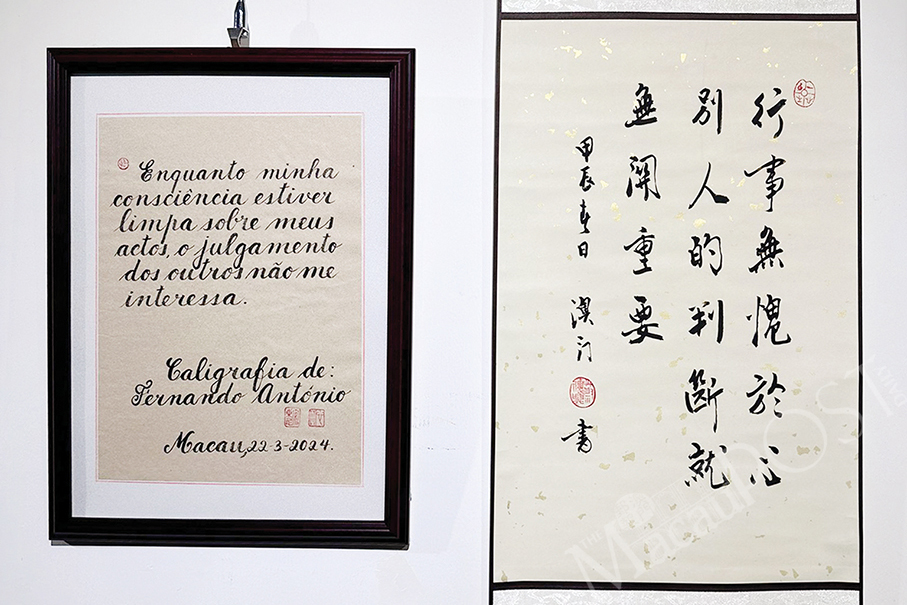 Enquanto minha
consciência estiver
limpa sobre meus
actos, o julgamento
dos outros não me
interessa.
Caligrafia de:
Fernando António
Macau, 22-3-2024.
行事無愧於心
別人的判斷就
無關重要
甲辰春日 澳门
書
THE
Macau POST